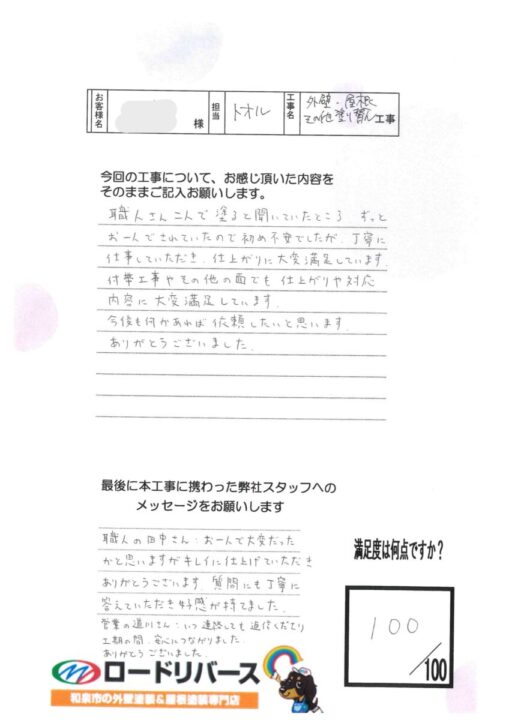 お客様名 様 担当 トオル 工事名 外壁・屋根
その他塗り替え工事
今回の工事について、お感じ頂いた内容を
そのままご記入お願いします。
職人さん二人で塗ると聞いていたところ ずっと
お一人でされていたので初め不安でしたが、丁寧に
仕事していただき、仕上がりに大変満足しています。
付帯工事やその他の面でも 仕上がりや対応
内容に大変満足しています。
今後も何かあれば依頼したいと思います。
ありがとうございました。
最後に本工事に携わった弊社スタッフへの
メッセージをお願いします
職人の田中さん:お一人で大変だった
かと思いますがキレイに仕上げていただき
ありがとうございます。質問にも丁寧に
答えていただき好感が持てました。
営業の道川さん:いつ連絡しても返信くださり
工期の間、安心につながりました。
ありがとうございました。
満足度は何点ですか?
100
/100
ロードリバース
和泉市の外壁塗装&屋根塗装専門店